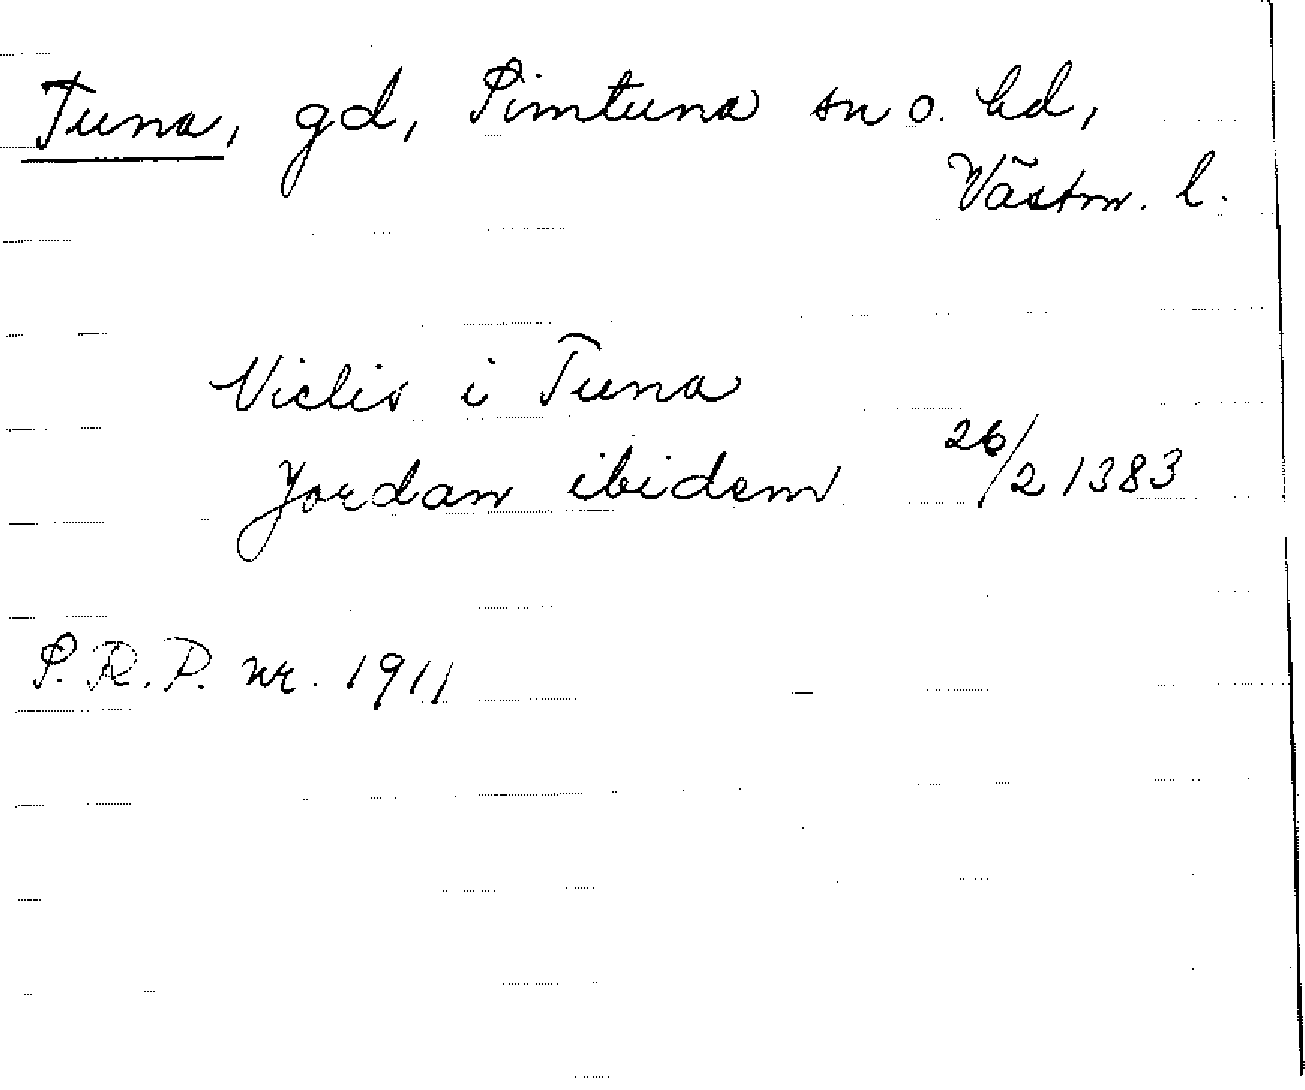 Tuna, gd, Simtuna sn o. hd,
Västm. l.
Niclis i Tuna
Jordan ibidem 26/2 1383
S.R.P. nr. 1911